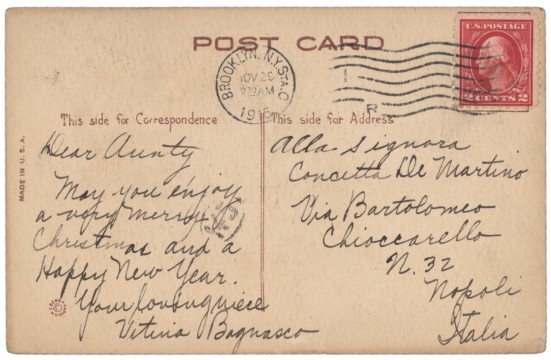 POST CARD
BROOKLYN, N.Y. STA. C
NOV 26
AM
U.S. POSTAGE
2 CENTS 2
R
This side for Correspondence
This side for Address
MADE IN U.S.A.
Dear Aunty
May you enjoy
a very merry
Christmas and a
Happy New Year.
Your loving niece
Vitina Bagnasco
Alla Signora
Concetta De Martino
Via Bartolomeo
Chioccarello
N. 32
Napoli
Italia